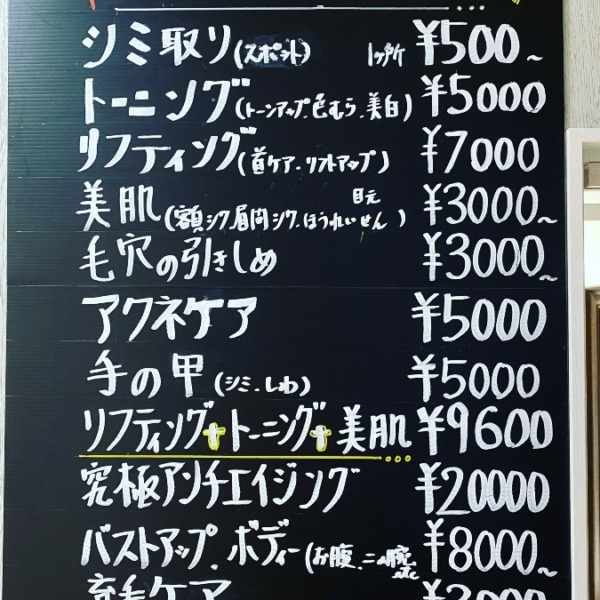 シミ取り(スポット) 1ヶ所 ¥500~
トーニング(トーンアップ.色むら.美白) ¥5000
リフティング(首ケア.リフトアップ) ¥7000
美肌(額シワ.眉間シワ.目元.ほうれいせん) ¥3000~
毛穴の引きしめ ¥3000~
アクネケア ¥5000
手の甲(シミ.しわ) ¥5000
リフティング+トーニング+美肌 ¥9600
究極アンチエイジング ¥20000
バストアップ.ボディー(お腹.二の腕etc ¥8000~
育毛ケア ¥3000